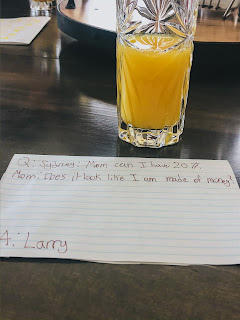 Q: Sydney: Mom can I have 20 %.
Mom: Does it look like I am made of money?
A: Larry